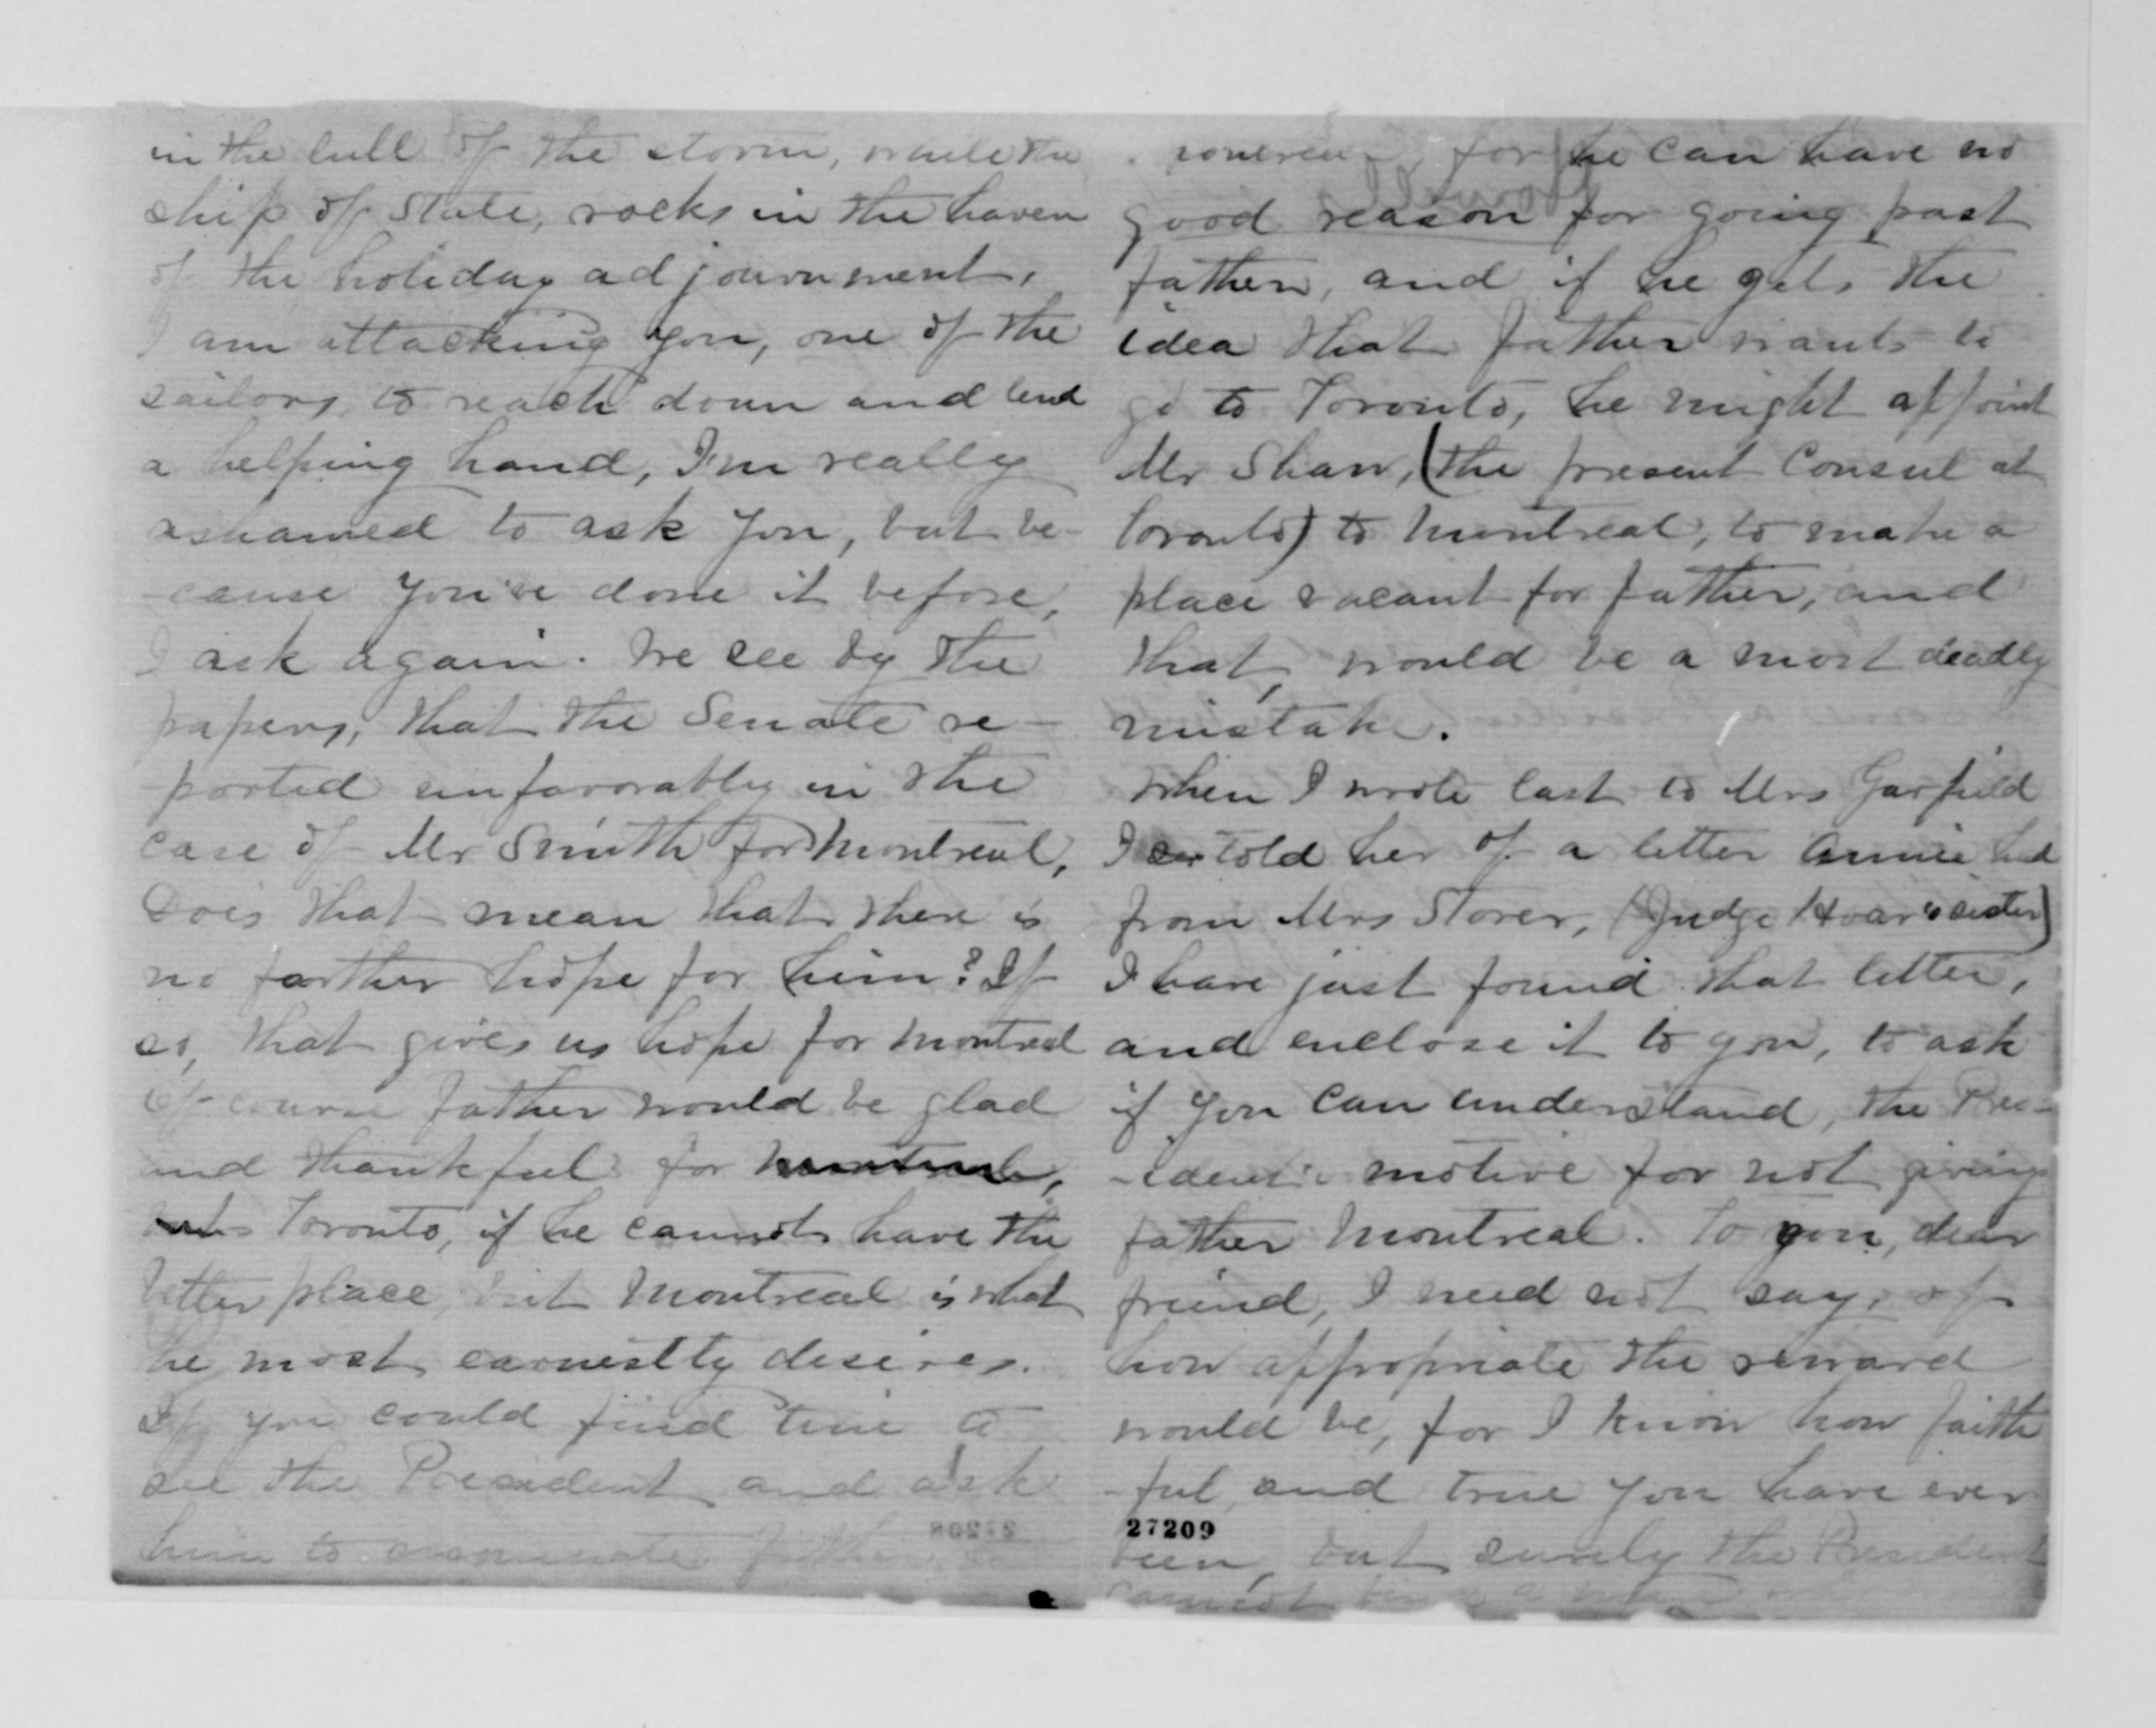 in the lull of the storm, while the
ship of State, rocks in the haven
of the holiday adjournment,
I am attacking you, one of the
sailors, to reach down and lend
a helping hand, I'm really
ashamed to ask you, but be-
-cause you've done it before,
I ask again. We see by the
papers, that the Senate re-
-ported unfavorably in the
case of Mr Smith for Montreal,
Does that mean that there is
no farther hope for him? If
so, that gives us hope for Montreal
Of course father would be glad
and thankful for Montreal,
but Toronto, if he cannot have the
better place, but Montreal is what
he most earnestly desires.
If you could find time to
see the President and ask
him to nominate father
for he can have no
good reason for going past
father, and if he gets the
idea that father wants to
go to Toronto, he might appoint
Mr Shaw, (the present Consul at
Toronto) to Montreal, to make a
place vacant for father, and
that, would be a most deadly
mistake.
When I wrote last to Mrs Garfield
I told her of a letter Annie had
from Mrs Storer, (Judge Hoar's sister)
I have just found that letter,
and enclose it to you, to ask
if you can understand, the Pres-
-ident's motive for not giving
father Montreal. To you, dear
friend, I need not say, of
how appropriate the reward
would be, for I know how faith
-ful and true you have ever
27209
been, but surely the President
cannot